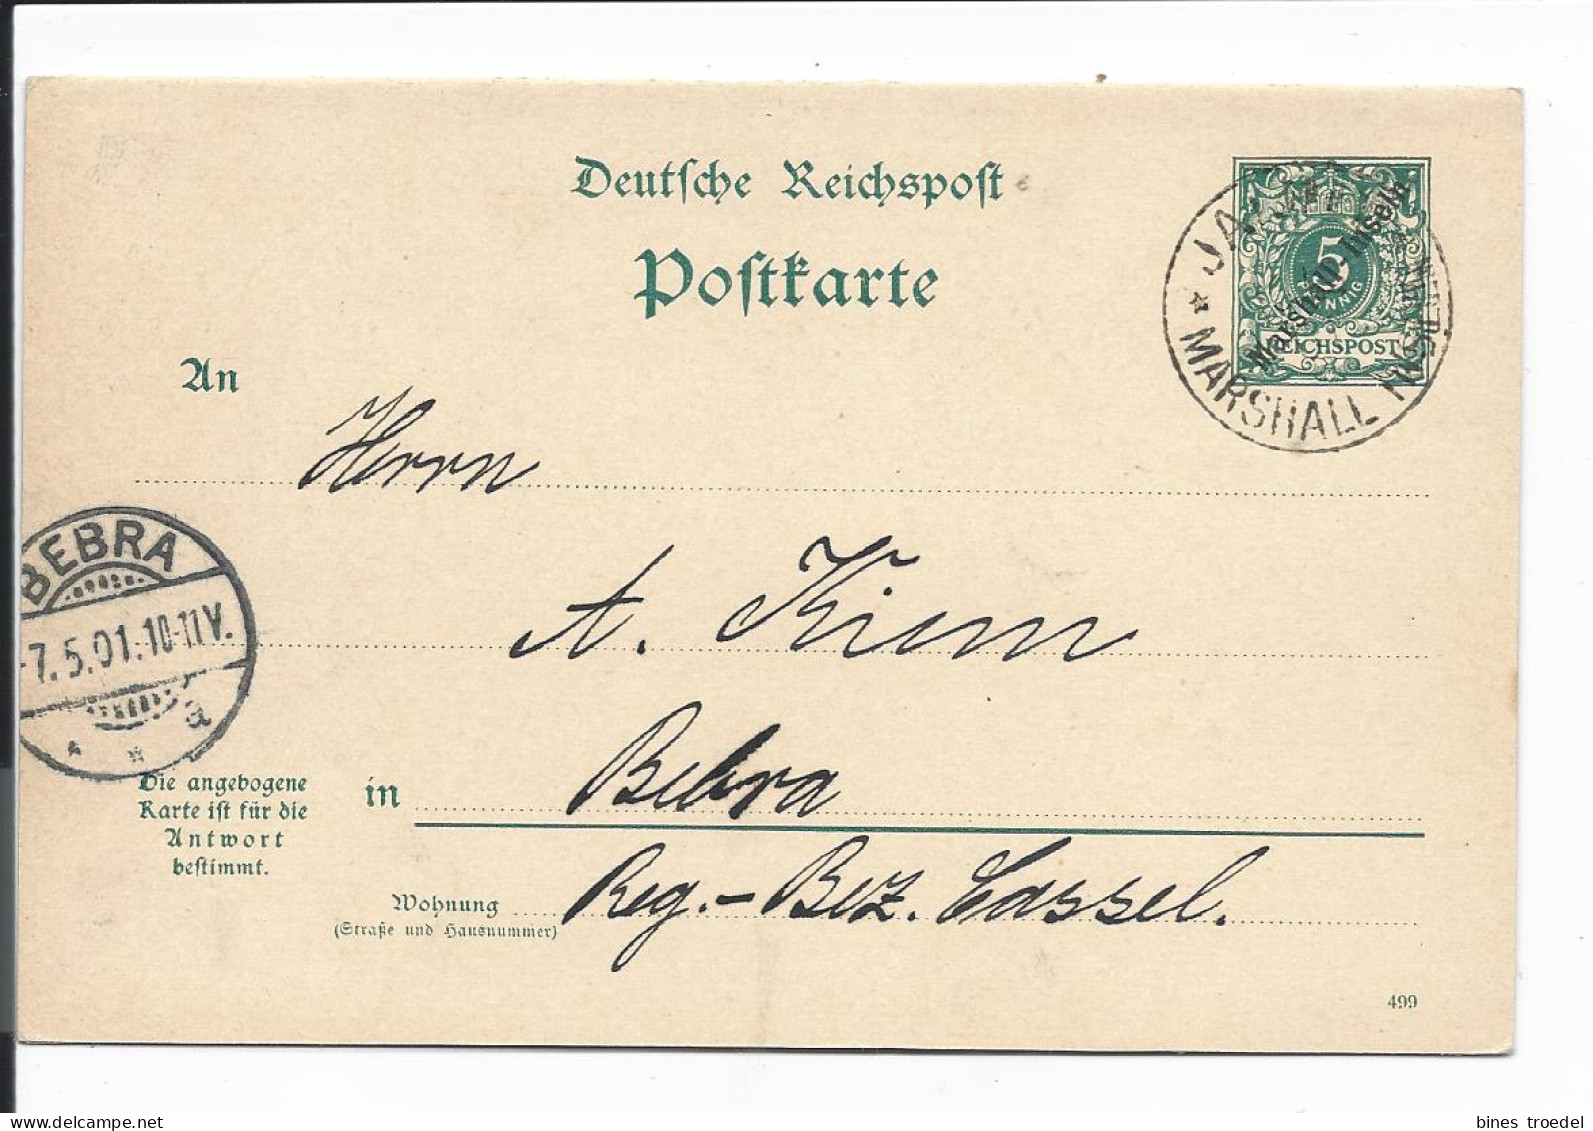 Deutsche Reichspost
Postkarte
5
PFENNIG
REICHSPOST
Marshall-Inseln
MARSHALL INSELN
An
Herrn
A. Kiem
BEBRA
-7.5.01.10-11V.
a
in Bebra
Die angebogene
Karte ist für die
Antwort
bestimmt.
Reg.-Bez. Cassel.
Wohnung
(Straße und Hausnummer)
499
bines troedel